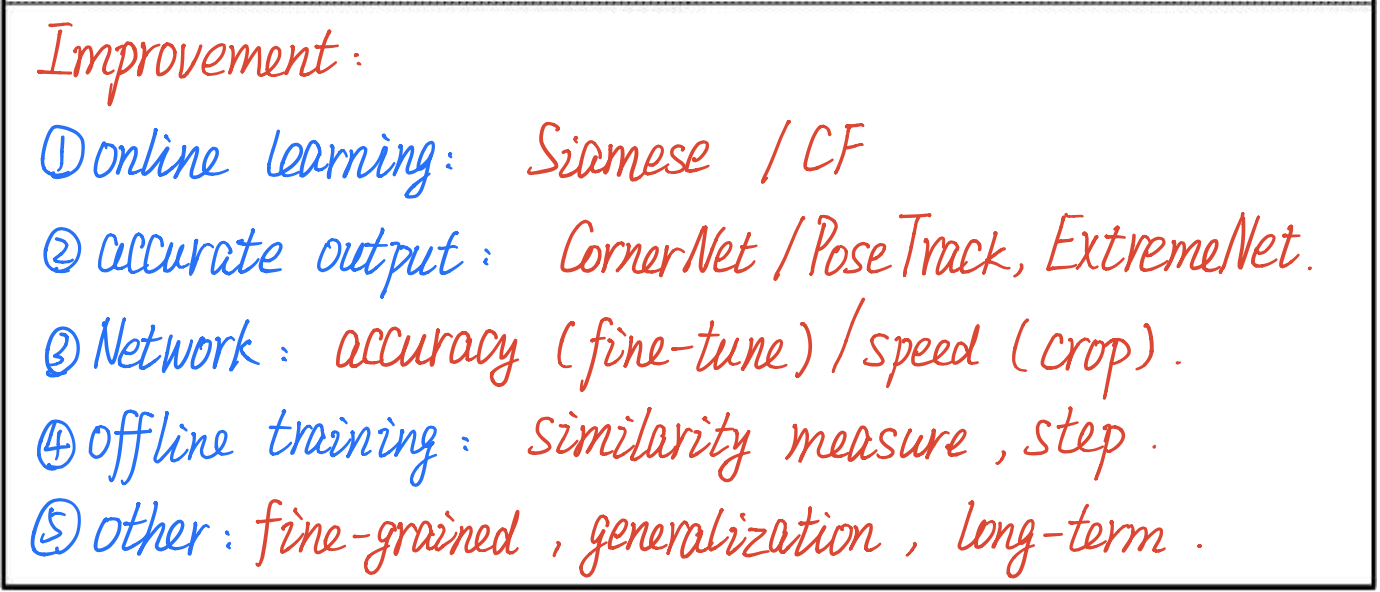 Improvement:
① online learning: Siamese / CF
② accurate output: CornerNet / PoseTrack, ExtremeNet.
③ Network: accuracy (fine-tune) / speed (crop).
④ offline training: similarity measure, step.
⑤ other: fine-grained, generalization, long-term.